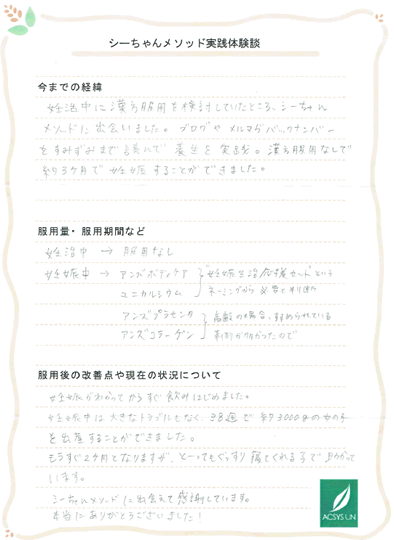 シーちゃんメソッド実践体験談
今までの経緯
妊活中に漢方服用を検討していたところ、シーちゃん
メソッドに出会いました。ブログやメルマガバックナンバー
をすみずみまで読んで養生を実践。漢方服用なしで
約3ヶ月で妊娠することができました。
服用量・服用期間など
妊活中 → 服用なし
妊娠中 → アンズボディケア
ユニカルシウム
「妊娠生活応援セット」という
ネーミングから必要と
アンズプラセンタ
アンズコラーゲン
高齢の場合、勧められている
ので
服用後の改善点や現在の状況について
妊娠がわかってからすぐ飲みはじめました。
妊娠中は大きなトラブルもなく、38週で約3000gの女の子
を出産することができました。
もうすぐ2ヶ月となりますが、とーってもぐっすり寝てくれる子で助かって
います。
シーちゃんメソッドに出会えて感謝しています。
本当にありがとうございました!
ACSYS UN